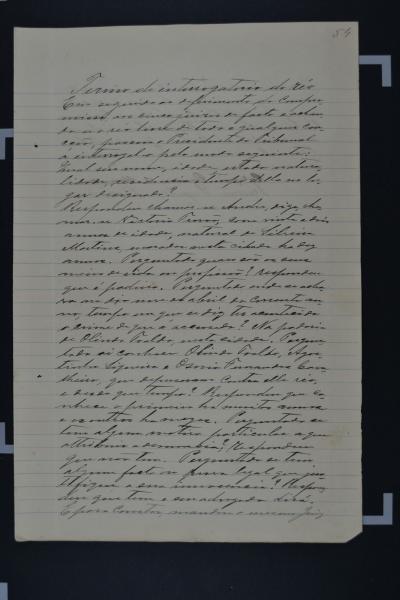 54
Termo de interrogatorio do réo
Em seguida ao deferimento do compro
misso aos cinco juizes de facto e achan
do-se o réo livre de todo e qualquer coa
cção, passou o Presidente do Tribunal
a interrogal-o pelo modo seguinte:
Qual seu nome, idade, estado, natura
lidade, residencia e tempo della no lo
gar designado?
Respondeu chamar-se André, digo, cha
mar-se Victorio, com vinte e dois
annos de idade, natural de Silveira
Martins, morador nesta cidade ha dez
annos. Perguntado quaes são os seus
meios de vida ou profissão? Respondeu
que é padeiro. Perguntado onde se acha
va no dia nove de abril do corrente an
no, tempo em que se diz ter acontecido
o crime de que é accusado? Na padaria
de Olindo, nesta cidade. Pergun
tado si conhece Olindo,
Siqueira e Osorio Fernandes
, que depuseram contra elle réo,
e desde que tempo? Respondeu que co
nhece o primeiro ha muitos annos
e os outros ha mezes. Perguntado se
tem algum motivo particular a que
attribua a denuncia? Respondeu
que não tem. Perguntado se tem
algum facto ou prova legal que jus
tifique a sua innocencia? Respon
deu que tem e seu advogado dirá.
E para constar, mandou o mesmo Juiz